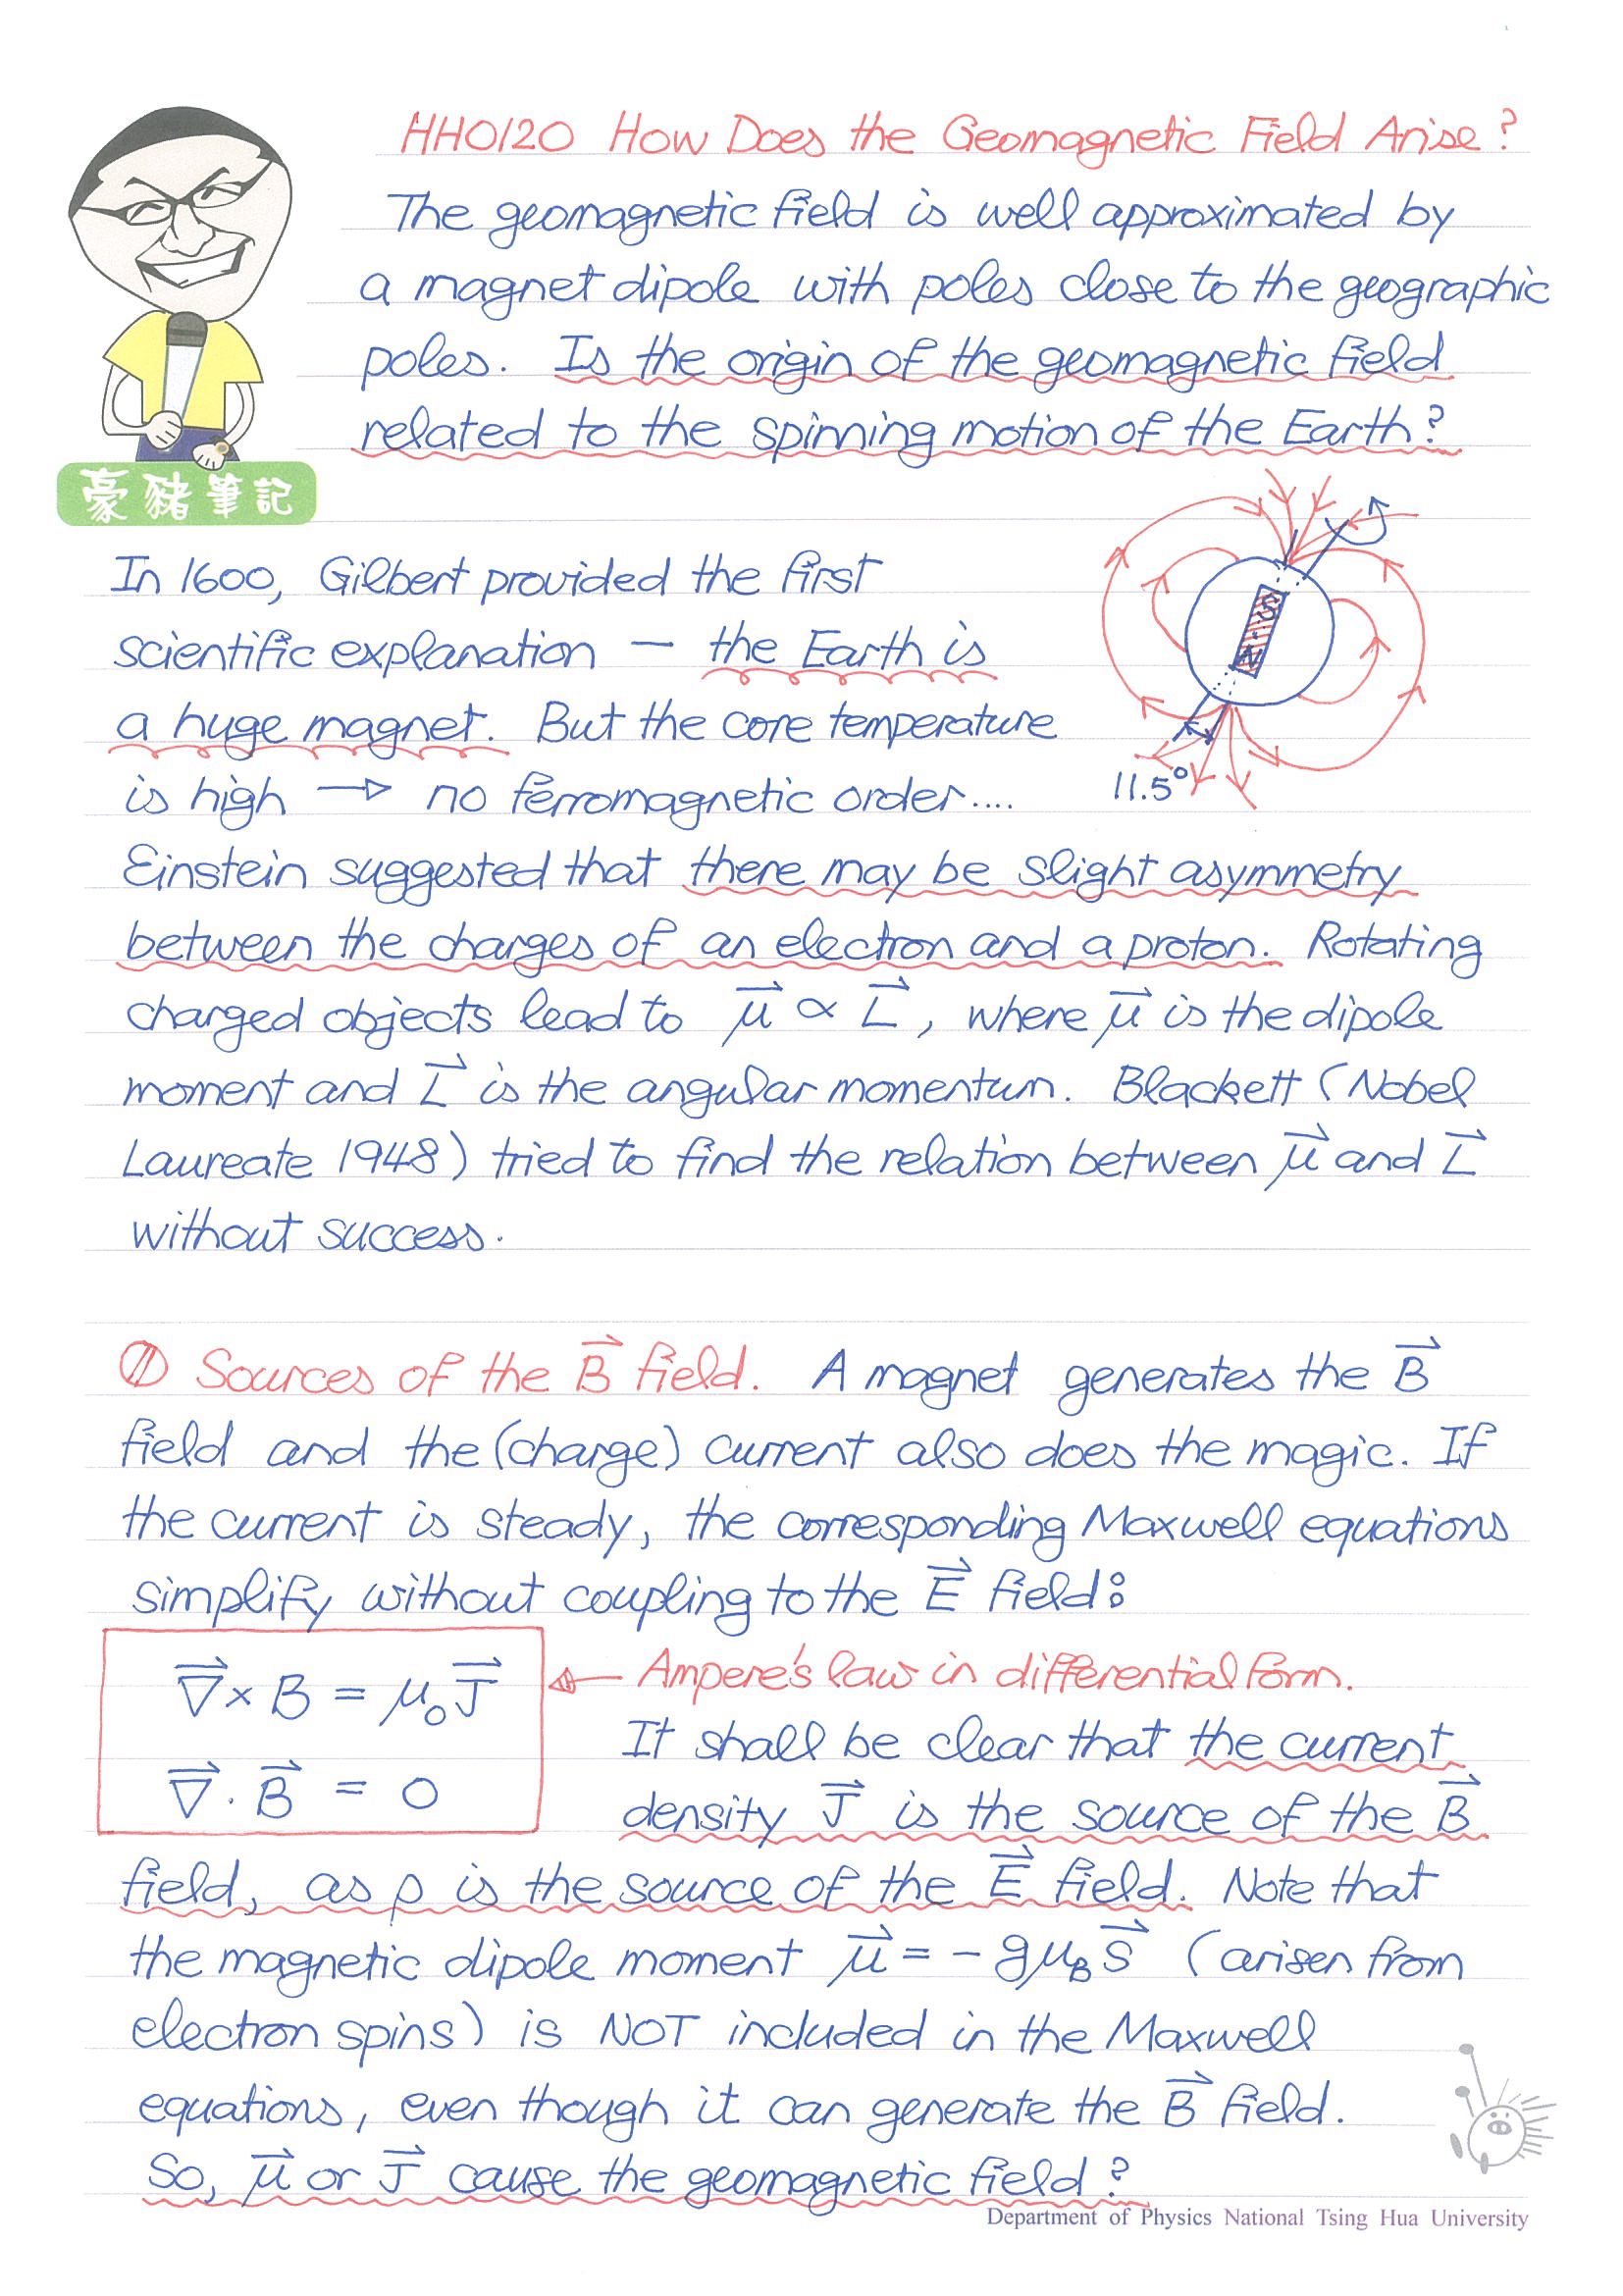 HH0120 How Does the Geomagnetic Field Arise?
The geomagnetic field is well approximated by
a magnet dipole with poles close to the geographic
poles. Is the origin of the geomagnetic field
related to the spinning motion of the Earth?
豪豬筆記
In 1600, Gilbert provided the first
scientific explanation — the Earth is
a huge magnet. But the core temperature
is high → no ferromagnetic order....
S
N
11.5°
Einstein suggested that there may be slight asymmetry
between the charges of an electron and a proton. Rotating
charged objects lead to μ⃗ ∝ L⃗, where μ⃗ is the dipole
moment and L⃗ is the angular momentum. Blackett (Nobel
Laureate 1948) tried to find the relation between μ⃗ and L⃗
without success.
① Sources of the B⃗ field. A magnet generates the B⃗
field and the (charge) current also does the magic. If
the current is steady, the corresponding Maxwell equations
simplify without coupling to the E⃗ field:
∇⃗ × B = μ₀ J⃗
∇⃗ · B⃗ = 0
← Ampere's law in differential form.
It shall be clear that the current
density J⃗ is the source of the B⃗
field, as ρ is the source of the E⃗ field. Note that
the magnetic dipole moment μ⃗ = - gμ_B s⃗ (arisen from
electron spins) is NOT included in the Maxwell
equations, even though it can generate the B⃗ field.
So, μ⃗ or J⃗ cause the geomagnetic field?
Department of Physics National Tsing Hua University